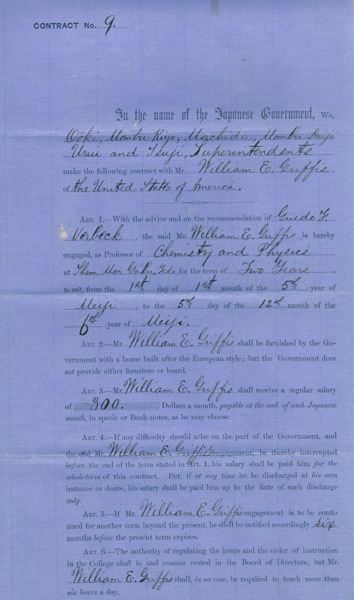 CONTRACT No. 9.
In the name of the Japanese Government, We,
Ooki, Mombu Kiyo, Machida, Mombu
Uriu and Tsuji, Superintendents
make the following contract with Mr William E. Griffis.
of the United States of America.
ART. 1.—With the advice and on the recommendation of Guido F.
Verbeck, the said Mr. William E. Griffis is hereby
engaged, as Professor of Chemistry and Physics
at for the term of Two Years
to wit, from the 1st day of 1st month of the 5th year of
Meiji to the 5th day of the 12th month of the
6th year of Meiji.
ART. 2.—Mr. William E. Griffis shall be furnished by the Gov-
ernment with a house built after the European style; but the Government
does not provide either furniture or board.
ART. 3.—Mr. William E. Griffis shall receive a regular salary
of 300. Dollars a month, payable at the end of each Japanese
month, in specie or Bank-notes, as he may choose.
ART. 4.—If any difficulty should arise on the part of the Government, and
the said Mr William E. Griffis engagement, be thereby interrupted
before the end of the term stated in Art. 1, his salary shall be paid him for the
whole term of this contract. But if at any time he be discharged at his own
instance or desire, his salary shall be paid him up to the date of such discharge
only.
ART. 5.—If Mr. William E. Griffis engagement is to be conti-
nued for another term beyond the present, he shall be notified accordingly six
months before the present term expires.
ART. 6.—The authority of regulating the hours and the order of instruction
in the College shall be and remain vested in the Board of Directors; but Mr
William E. Griffis shall, in no case, be required to teach more than
six hours a day.